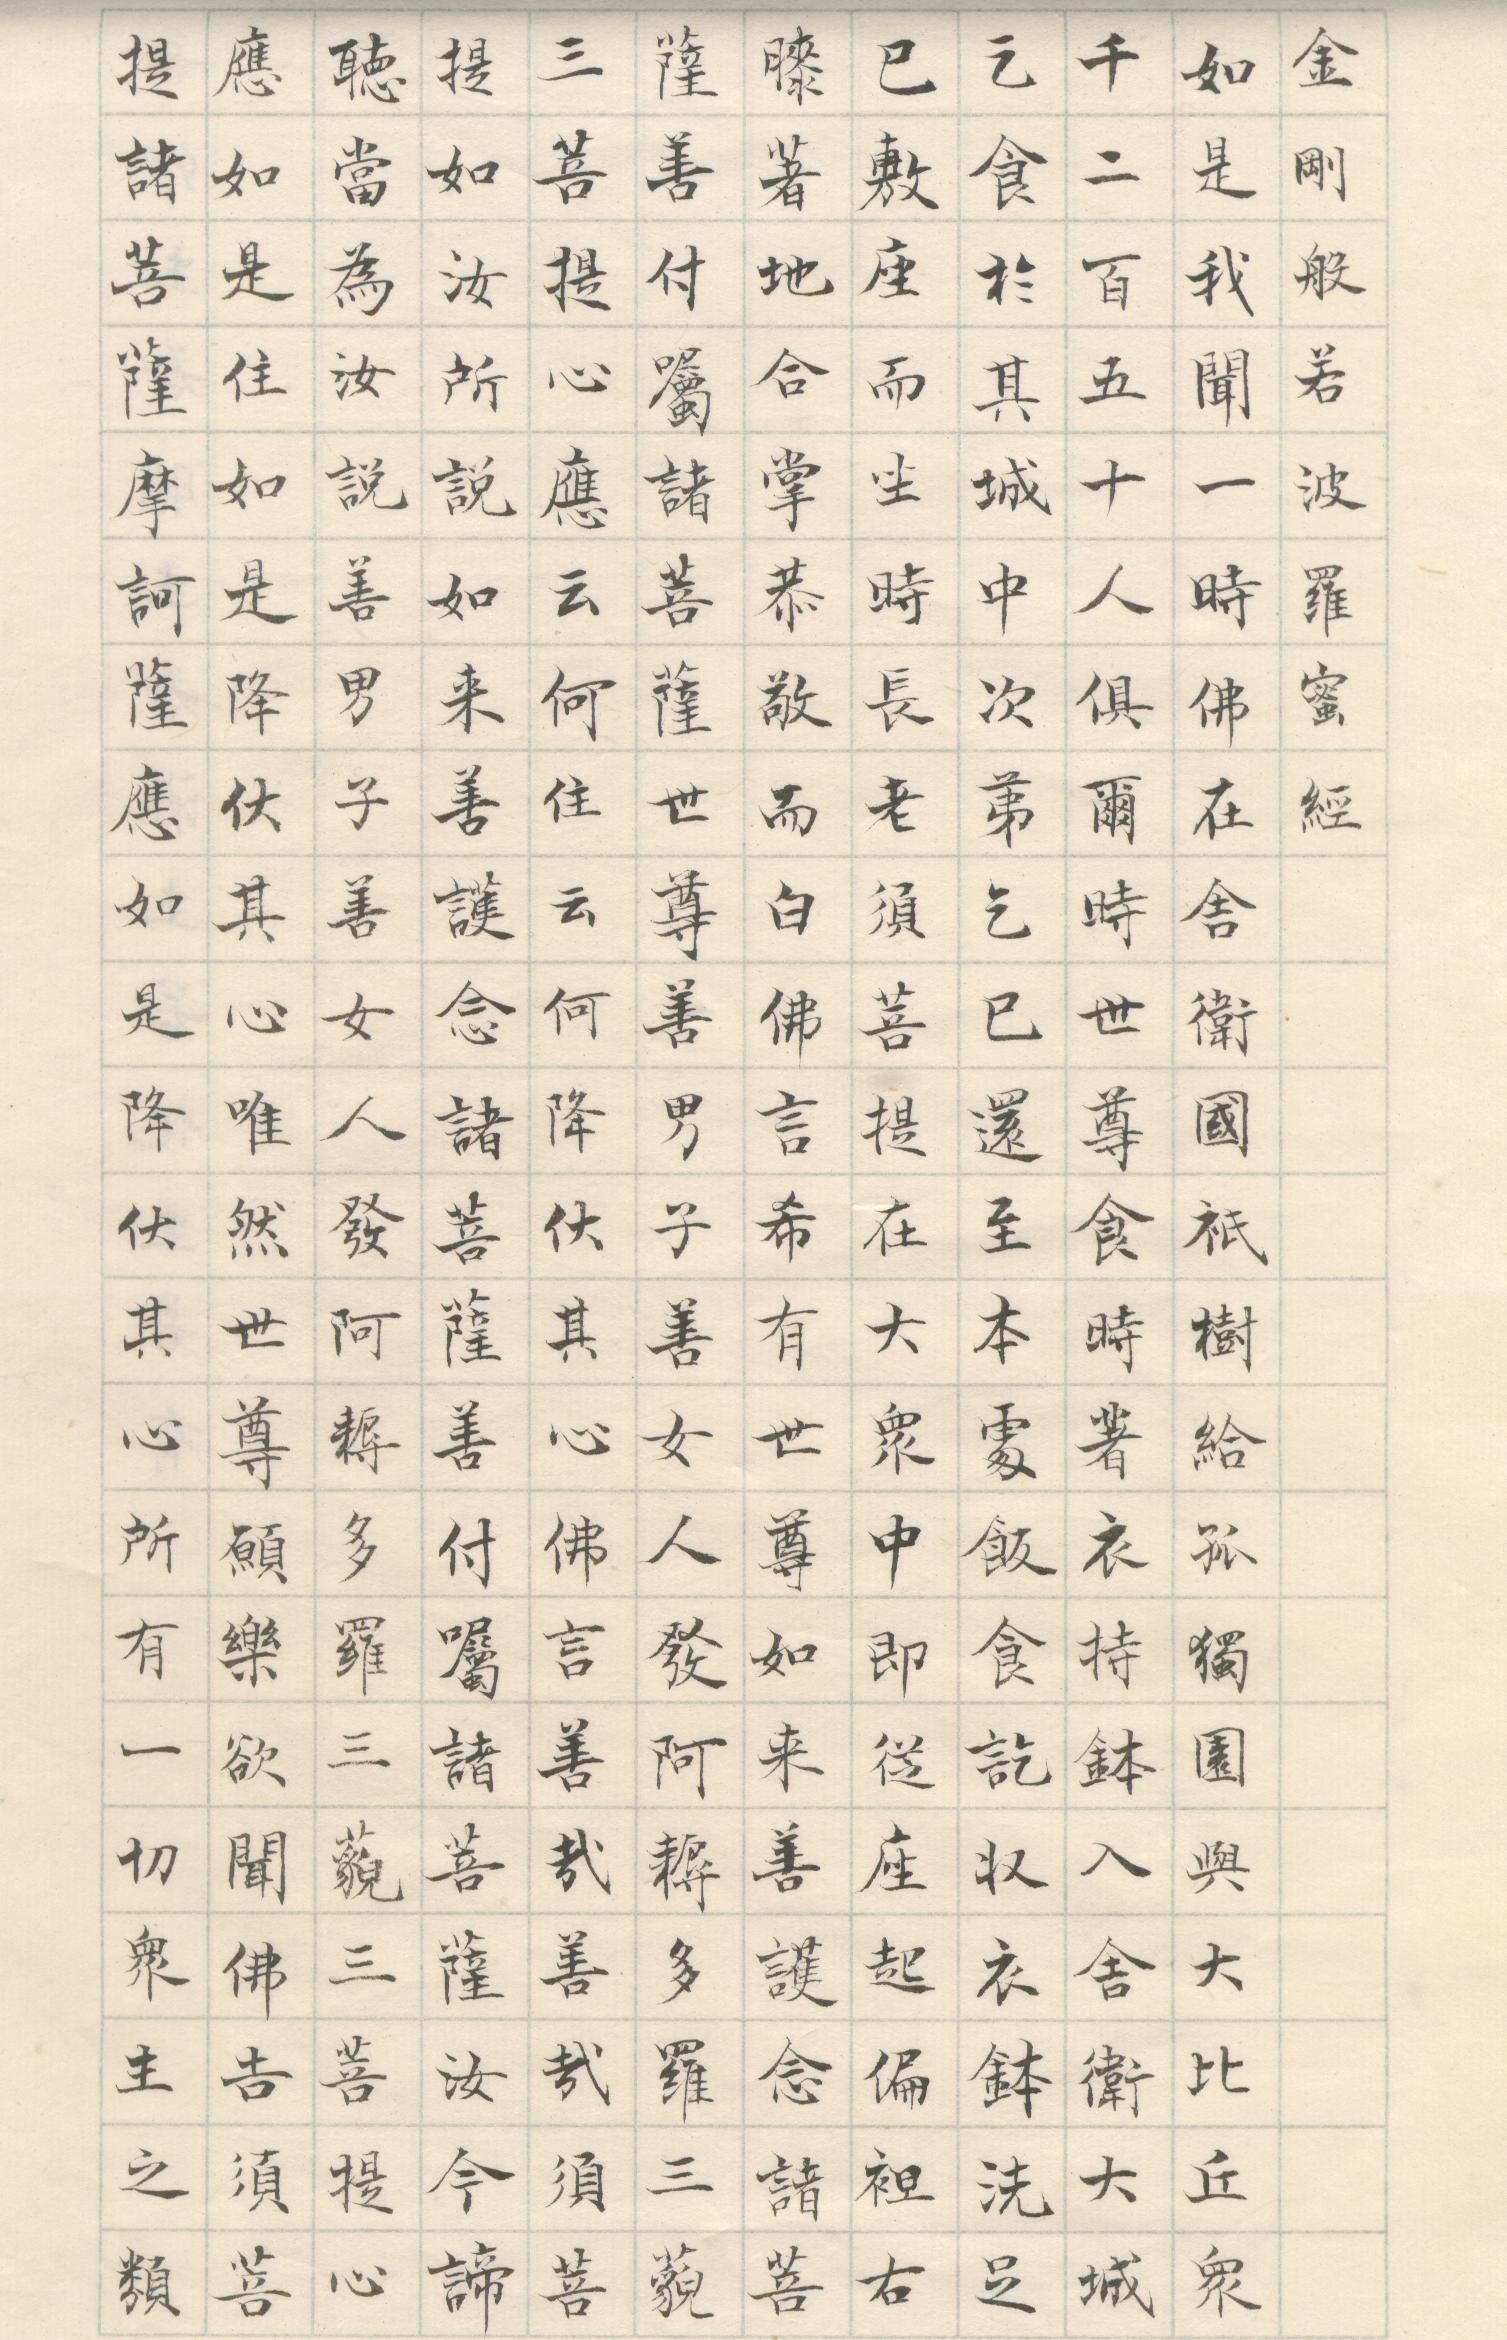 金剛般若波羅蜜經
如是我聞一時佛在舍衛國祇樹給孤獨園與大比丘眾
千二百五十人俱爾時世尊食時著衣持鉢入舍衛大城
乞食於其城中次第乞已還至本處飯食訖収衣鉢洗足
已敷座而坐時長老須菩提在大眾中即從座起偏袒右
膝著地合掌恭敬而白佛言希有世尊如来善護念諸菩
薩善付囑諸菩薩世尊善男子善女人發阿耨多羅三藐
三菩提心應云何住云何降伏其心佛言善哉善哉須菩
提如汝所說如来善護念諸菩薩善付囑諸菩薩汝今諦
聽當為汝說善男子善女人發阿耨多羅三藐三菩提心
應如是住如是降伏其心唯然世尊願樂欲聞佛告須菩
提諸菩薩摩訶薩應如是降伏其心所有一切眾生之類